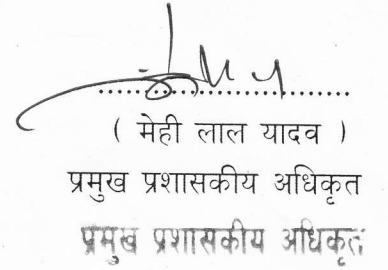 ( मेही लाल यादव )
प्रमुख प्रशासकीय अधिकृत
प्रमुख प्रशासकीय अधिकृत